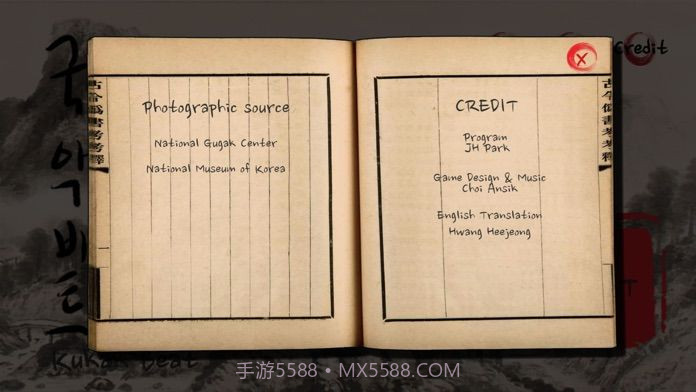 국악비트
Kukak Beat
Credit
古今爲書考考釋
Photographic source
National Gugak Center
National Museum of Korea
X
CREDIT
Program
JH Park
Game Design & Music
Choi Ansik
English Translation
Hwang Heejeong
手游5588 • MX5588.COM